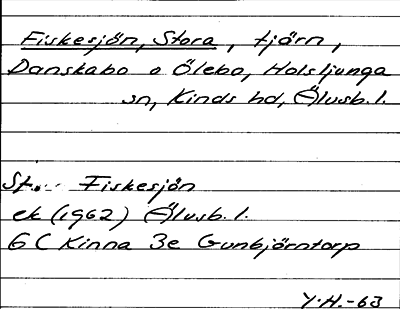 Fiskesjön, Stora, tjärn,
Danskabo o Ölebo, Holsljunga
sn, Kinds hd, Älvsb. l.
St... Fiskesjön
ek (1962) Älvsb. l.
6 C Kinna 3e Gunbjörntorp
Y.H.-63